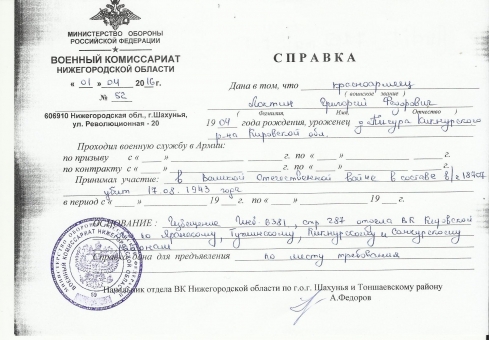 МИНИСТЕРСТВО ОБОРОНЫ
РОССИЙСКОЙ ФЕДЕРАЦИИ
ВОЕННЫЙ КОМИССАРИАТ
НИЖЕГОРОДСКОЙ ОБЛАСТИ
« 01 » 04 2016г.
№ 52
606910 Нижегородская обл., г.Шахунья,
ул. Революционная - 20
СПРАВКА
Дана в том, что красноармеец
( воинское звание )
Григорий Федорович
(Фамилия, Имя, Отчество )
1904 года рождения, уроженец д. Пигура Кикнурского
р-на Кировской обл.
Проходил военную службу в Армии:
по призыву с « » г. по « » г.
по контракту с « » г. по « » г.
Принимал участие: в Великой Отечественной войне в составе в/ч
убит 17.08.1943 года
в период с « » 19 г. по « » 19 г.
ОСНОВАНИЕ : Извещение Инв 0381, стр 287 отдела ВК Кировской
по Яранскому, Тужинскому, Кикнурскому и Санчурскому
районам
Справка дана для предъявления по месту требования
Начальник отдела ВК Нижегородской области по г.о.г. Шахунья и Тоншаевскому району
А.Федоров